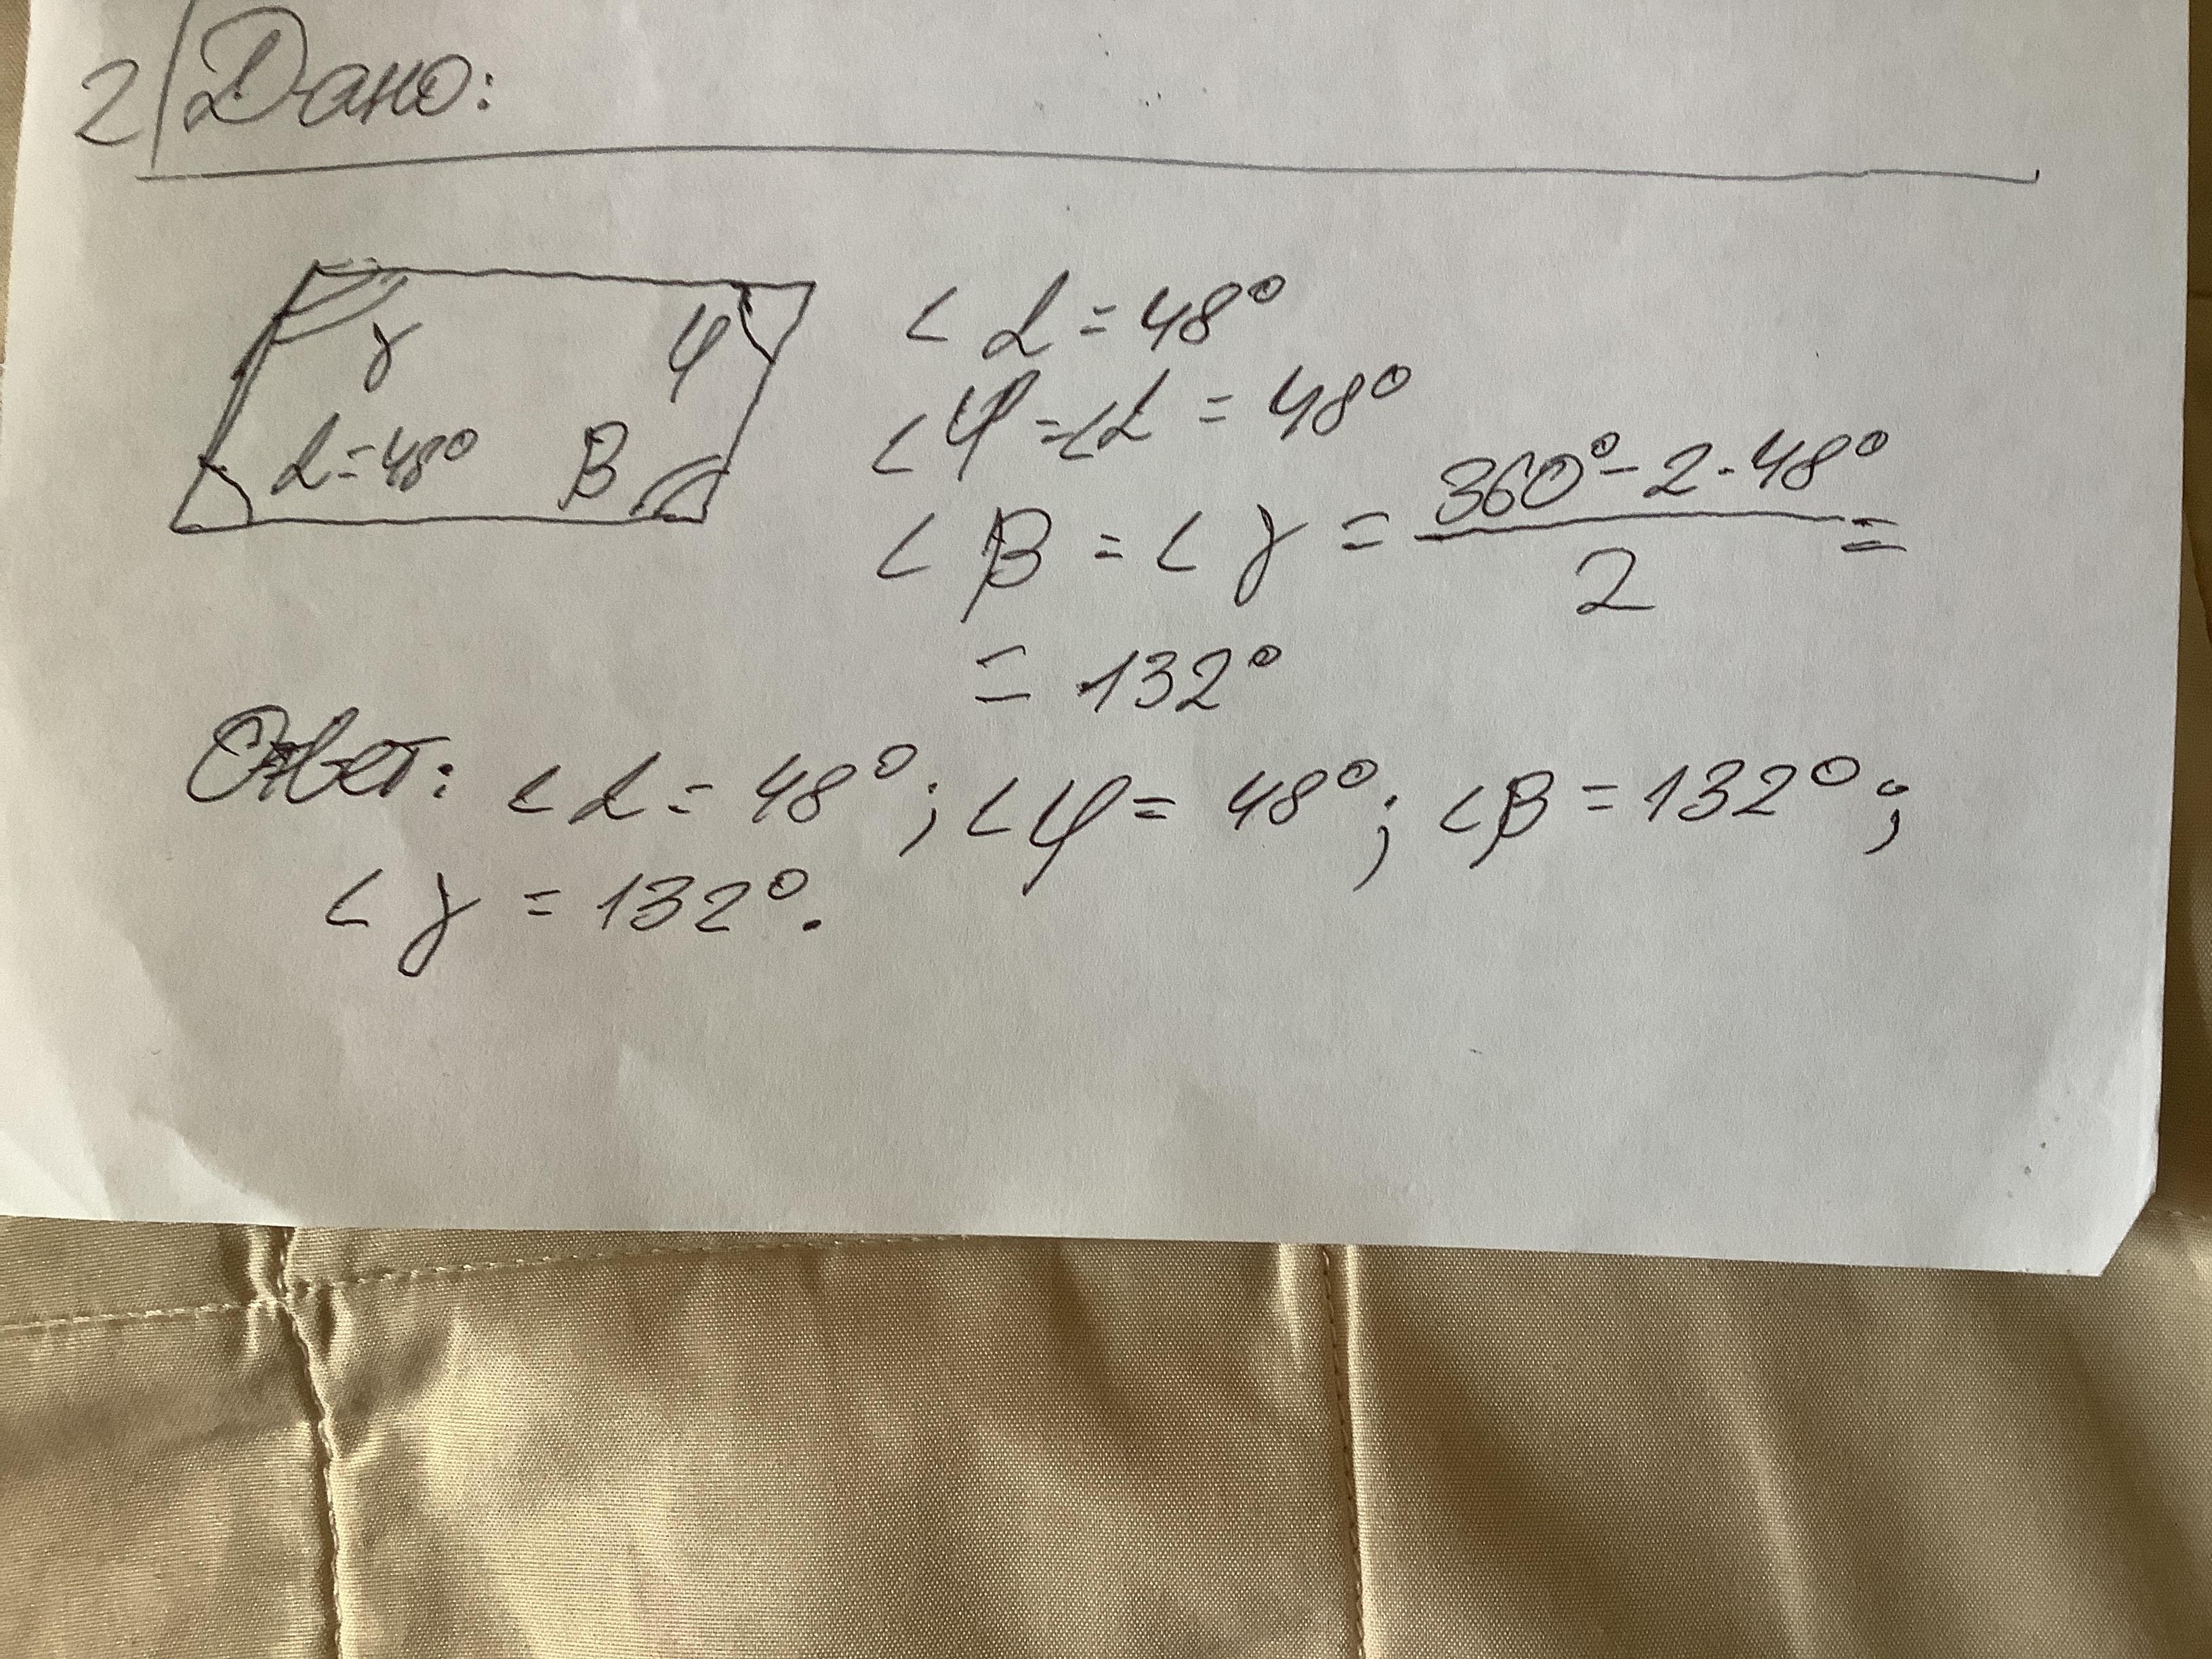 2 Дано:
γ φ
α=48° β
< α = 48°
< φ = < α = 48°
< β = < γ = (360° - 2·48°)/2 =
= 132°
Ответ: < α = 48°; < φ = 48°; < β = 132°;
< γ = 132°.